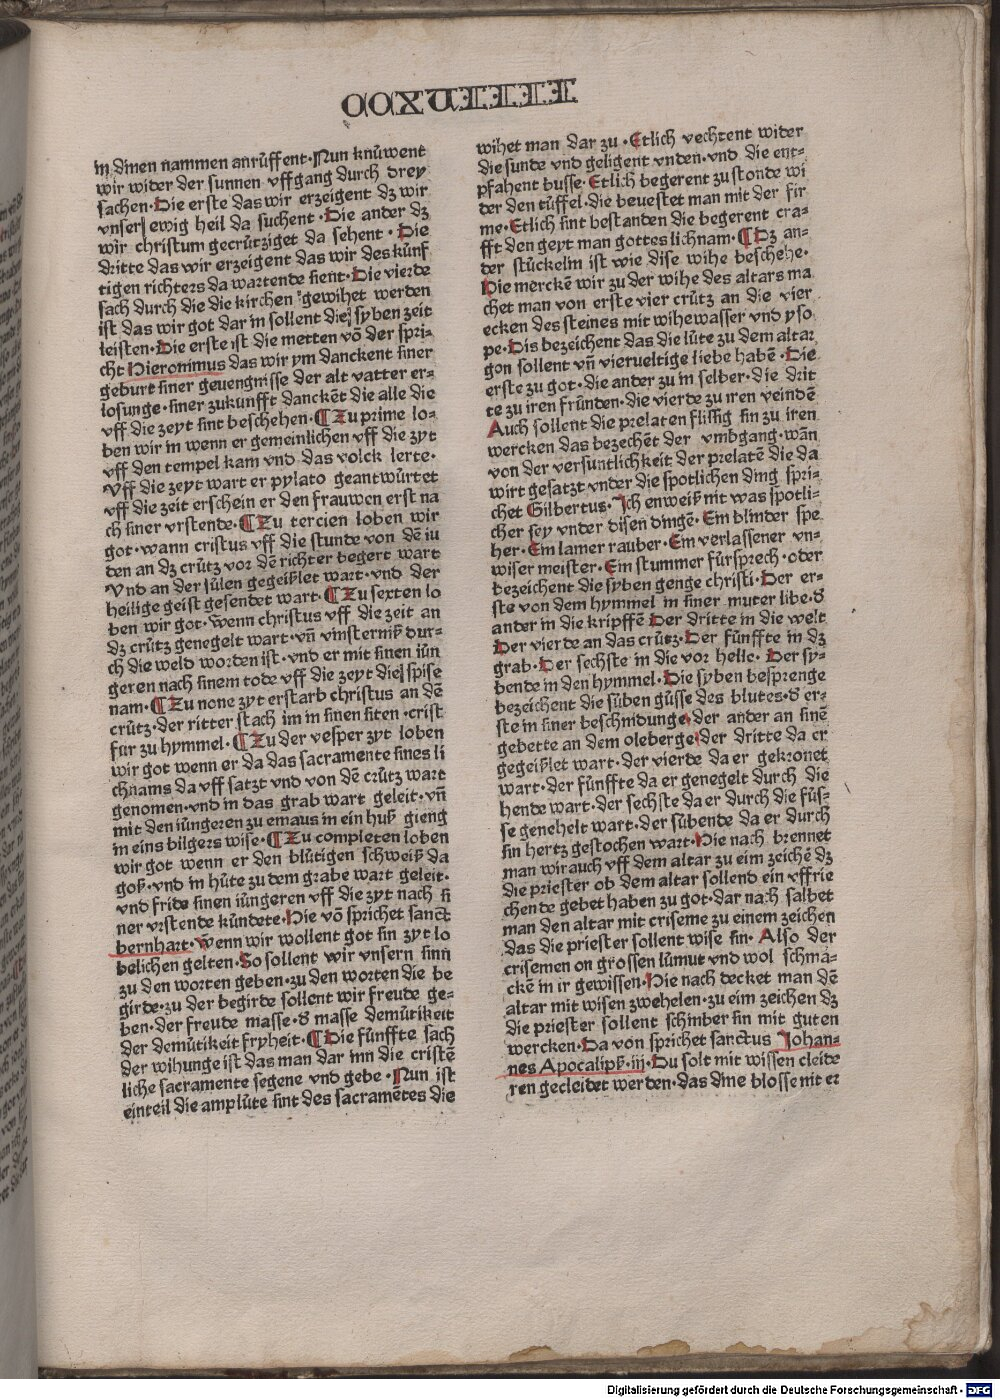 CCXVIIIII
in dinen nammen anrůffent·Nun knüwent
wir wider der sunnen vffgang durch drey
sachen·Die erste das wir erzeigent dz wir
vnser ewig heil da suchent·Die ander dz
wir christum gecrütziget da sehent·Die
dritte das wir erzeigent das wir des künf
tigen richters da wartende sient·Die vierde
sach durch die die kirchen gewihet werden
ist das wir got dar in sollent die syben zeit
leisten·Die erste ist die metten võ der spri-
cht Hieronimus das wir ym danckent siner
geburt siner geuengnisse der alt vatter er-
losunge·siner zukunfft danckẽt die alle die
vff die zeyt sint beschehen·Zu prime lo-
ben wir in wenn er gemeinlichen vff die zyt
vff den tempel kam vnd das volck lerte·
Vff die zeyt wart er pylato geantwürtet
vff die zeit erschein er den frauwen erst na
ch siner vrstende·Zu tercien loben wir
got·wann cristus vff die stunde von dẽ iu
den an dz crütz vor dẽ richter begert wart
Vnd an der sülen gegeißlet wart·vnd der
heilige geist gesendet wart·Zu sexten lo
ben wir got·Wenn christus vff die zeit an
dz crütz genegelt wart·vñ vinsterniß dur-
ch die weld worden ist·vnd er mit sinen iün
geren nach sinem tode vff die zeyt die spise
nam·Zu none zyt erstarb christus an dẽ
crütz·der ritter stach im in sinen siten·crist
fur zu hymmel·Zu der vesper zyt loben
wir got wenn er da das sacramente sines li
chnams da vff satzt vnd von dẽ crütz wart
genomen·vnd in das grab wart geleit·vñ
mit den iüngeren zu emaus in ein huß gieng
in eins bilgers wise·Zu completen loben
wir got wenn er den blütigen schweiß da
goß·vnd in hüte zu dem grabe wart geleit·
vnd fride sinen iüngeren vff die zyt nach si
ner vrstende kündete·Hie võ sprichet sanct
bernhart·Wenn wir wollent got sin zyt lo
belichen gelten·So sollent wir vnsern sinn
zu den worten geben·zu den worten die be
girde·zu der begirde sollent wir freude ge-
ben·der freude masse·d masse demütikeit
der demütikeit fryheit·Die fünffte sach
der wihunge ist das man dar inn die cristẽ
liche sacramente segene vnd gebe·Nun ist
ein teil die amplute sint des sacramẽtes die
wihet man dar zu·Etlich vechtent wider
die sunde vnd geligent vnden·vnd die ent-
pfahent busse·Etlich begerent zu stonde wi
der den tüffel·die beuestet man mit der fir
me·Etlich sint bestanden die begerent cra-
fft den geyt man gottes lichnam·Dz an-
der stückelin ist wie dise wihe beschehe·
Hie merckẽ wir zu der wihe des altars ma
chet man von erste vier crütz an die vier
ecken des steines mit wihewasser vnd yso
pe·Dis bezeichent das die lüte zu dem altar
gon sollent vñ viervueltige liebe habẽ·Die
erste zu got·die ander zu in selber·die drit
te zu iren fründen·die vierde zu iren veindẽ
Auch sollent die prelaten flissig sin zu iren
wercken das bezechẽt der vmbgang·wãn
von der versuntlichkeit der prelatẽ die da
wirt gesatzt vnder die spotlichen ding spri-
chet Gilbertus·Ich enweiß nit was spotli-
cher sey vnder disen dingẽ·Ein blinder spe
her·Ein lamer rauber·Ein verlassener vn-
wiser meister·Ein stummer fürsprech·oder
bezeichent die syben genge christi·Der er-
ste von dem hymmel in siner muter libe·d
ander in die kripffẽ Der dritte in die welt
Der vierde an das crütz·Der fünffte in dz
grab·Der sechste in die vor helle·Der sy-
bende in den hymmel·Die syben besprenge
bezeichent die süben güsse des blutes·d er-
ste in siner beschnidunge·der ander an sinẽ
gebette an dem oleberge·der dritte da er
gegeißlet wart·der vierde da er gekronet
wart·der fünffte da er genegelt durch die
hende wart·der sechste da er durch die füs-
se genehelt wart·der sübende da er durch
sin hertz gestochen wart·Hie nach brennet
man wirauch vff dem altar zu eim zeichẽ dz
die priester ob dem altar sollend ein vffrie
chende gebet haben zu got·dar nach salbet
man den altar mit criseme zu einem zeichen
das die priester sollent wise sin·Also der
crisemen on grossen lümut vnd wol schma-
ckẽ in ir gewissen·Hie nach decket man dẽ
altar mit wisen zwehelen·zu eim zeichen dz
die priester sollent schinber sin mit guten
wercken·Da von sprichet sanctus Johan-
nes Apocalipß·iii·Du solt mit wissen cleide
ren gecleidet werden·das dine blosse nit er
Digitalisierung gefördert durch die Deutsche Forschungsgemeinschaft - DFG